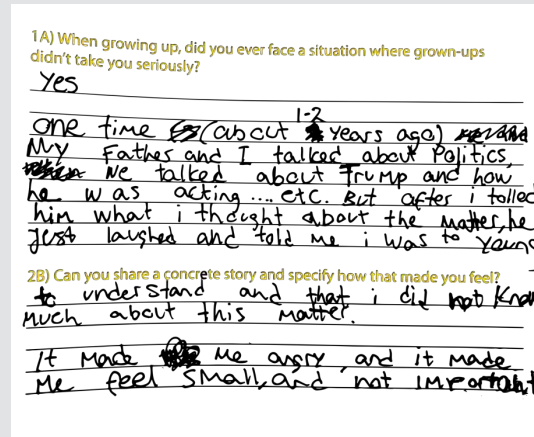 1A) When growing up, did you ever face a situation where grown-ups
didn't take you seriously?
Yes
1-2
one time (about years ago)
My Father and I talked about Politics,
We talked about Trump and how
he was acting.... etc. But after i tolled
him what i thought about the matter, he
Just laughed and told me i was to young
2B) Can you share a concrete story and specify how that made you feel?
to understand and that i did not know
much about this matter.
It made me angry, and it made
Me feel small, and not important